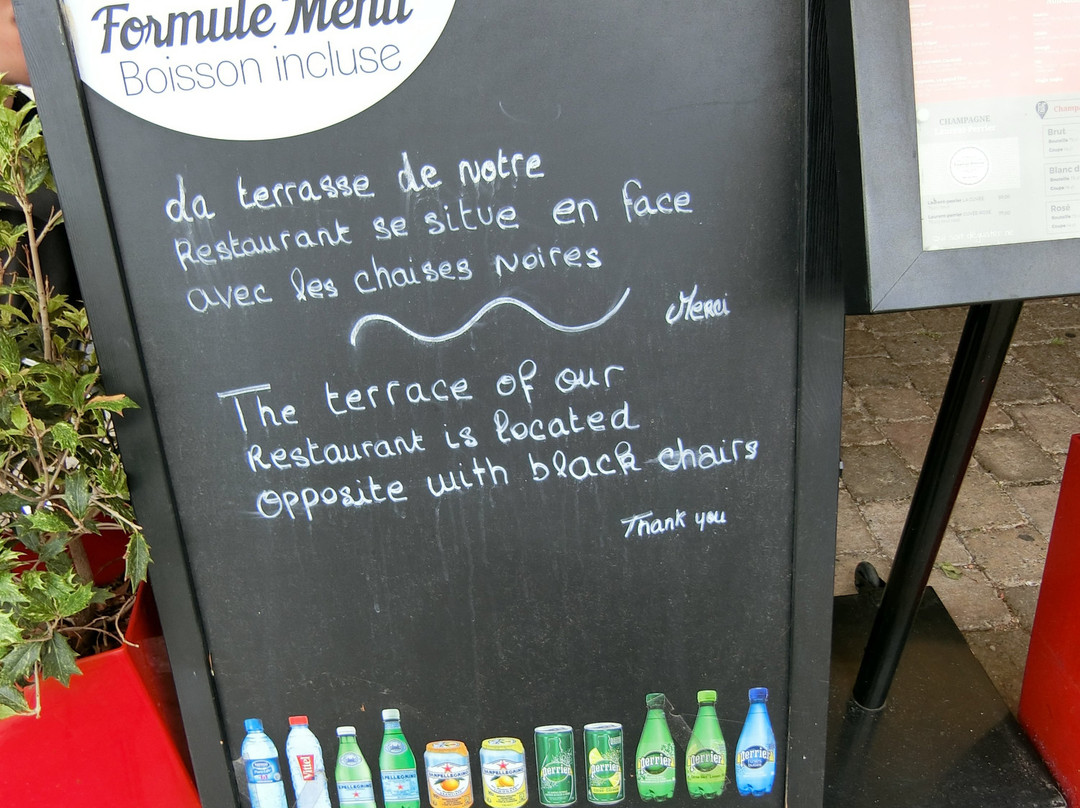 Formule Menu
Boisson incluse
da terrasse de notre
Restaurant se situe en face
avec les chaises noires
Merci
The terrace of our
Restaurant is located
opposite with black chairs
Thank you
CHAMPAGNE
Brut
Blanc d
Rosé
Vittel
S.PELLEGRINO
SANPELLEGRINO
SANPELLEGRINO
Perrier
Perrier
Perrier
Perrier
Perrier